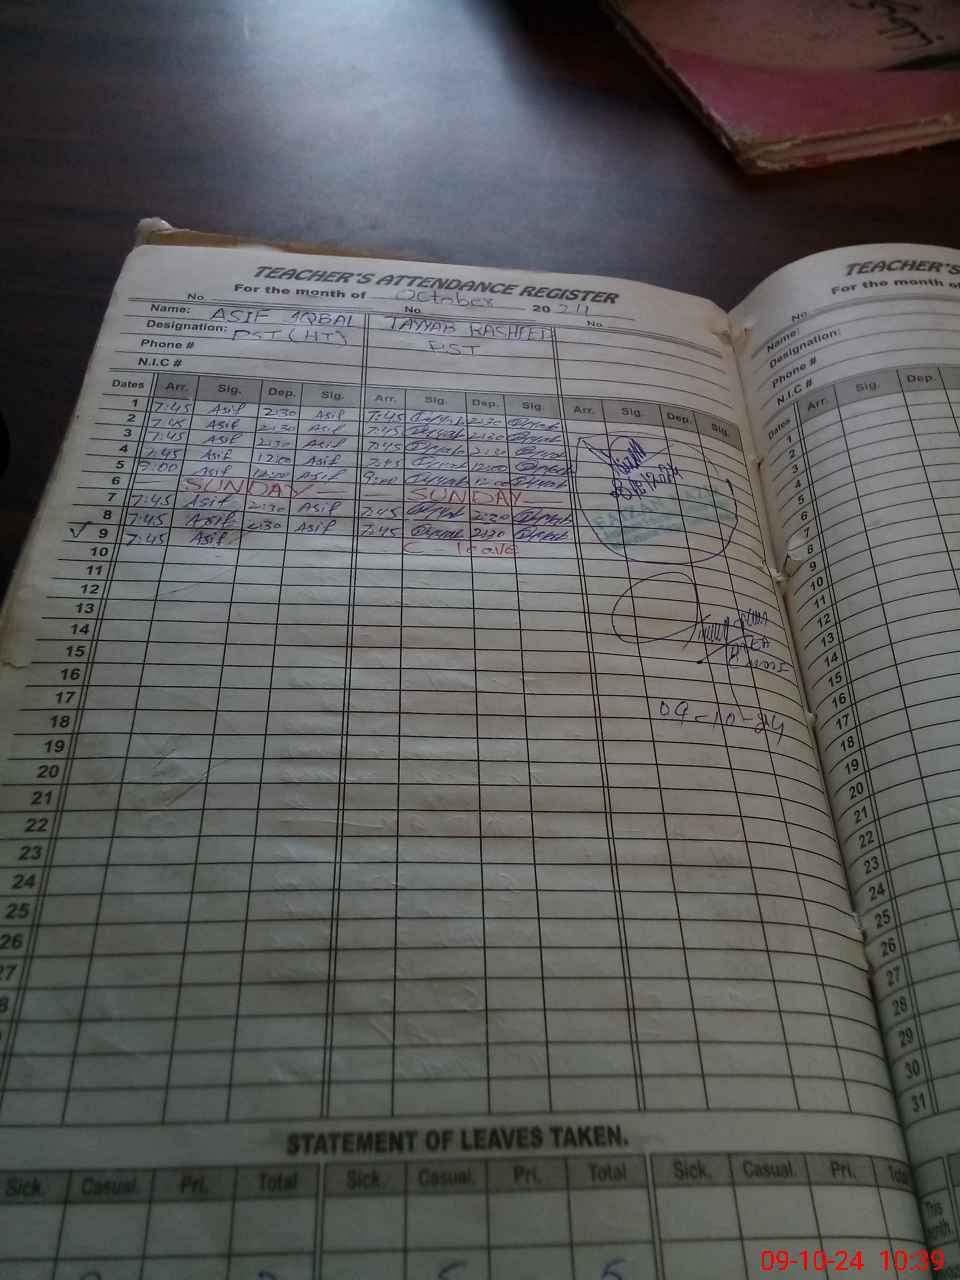 TEACHER'S ATTENDANCE REGISTER
For the month of October 2024
No. No. No.
Name: ASIF IQBAL TAYYAB RASHEED
Designation: PST (HT) PST
Phone #
N.I.C #
Dates Arr. Sig. Dep. Sig. Arr. Sig. Dep. Sig. Arr. Sig. Dep. Sig.
1 7:45 Asif 2:30 Asif 7:45 2:30
2 7:45 Asif 2:30 Asif 7:45 2:30
3 7:45 Asif 2:30 Asif 7:45 2:30
4 7:45 Asif 12:00 Asif 7:45 12:00
5 9:00 Asif 12:00 Asif 9:00 12:00
6 SUNDAY SUNDAY
7 7:45 Asif 2:30 Asif 7:45 2:30
8 7:45 Asif 2:30 Asif 7:45 2:30
9 7:45 Asif C - leave
10
11
12
13
14
15
16
17
18
19
20
21
22
23
24
25
26
27
8
09-10-24
STATEMENT OF LEAVES TAKEN.
Sick. Casual. Pri. Total Sick. Casual. Pri. Total Sick. Casual. Pri. Total
TEACHER'S
For the month of
No.
Name:
Designation:
Phone #
N.I.C #
Dates Arr. Sig. Dep.
1
2
3
4
5
6
7
8
9
10
11
12
13
14
15
16
17
18
19
20
21
22
23
24
25
26
27
28
29
30
31
This
month.
09-10-24 10:39